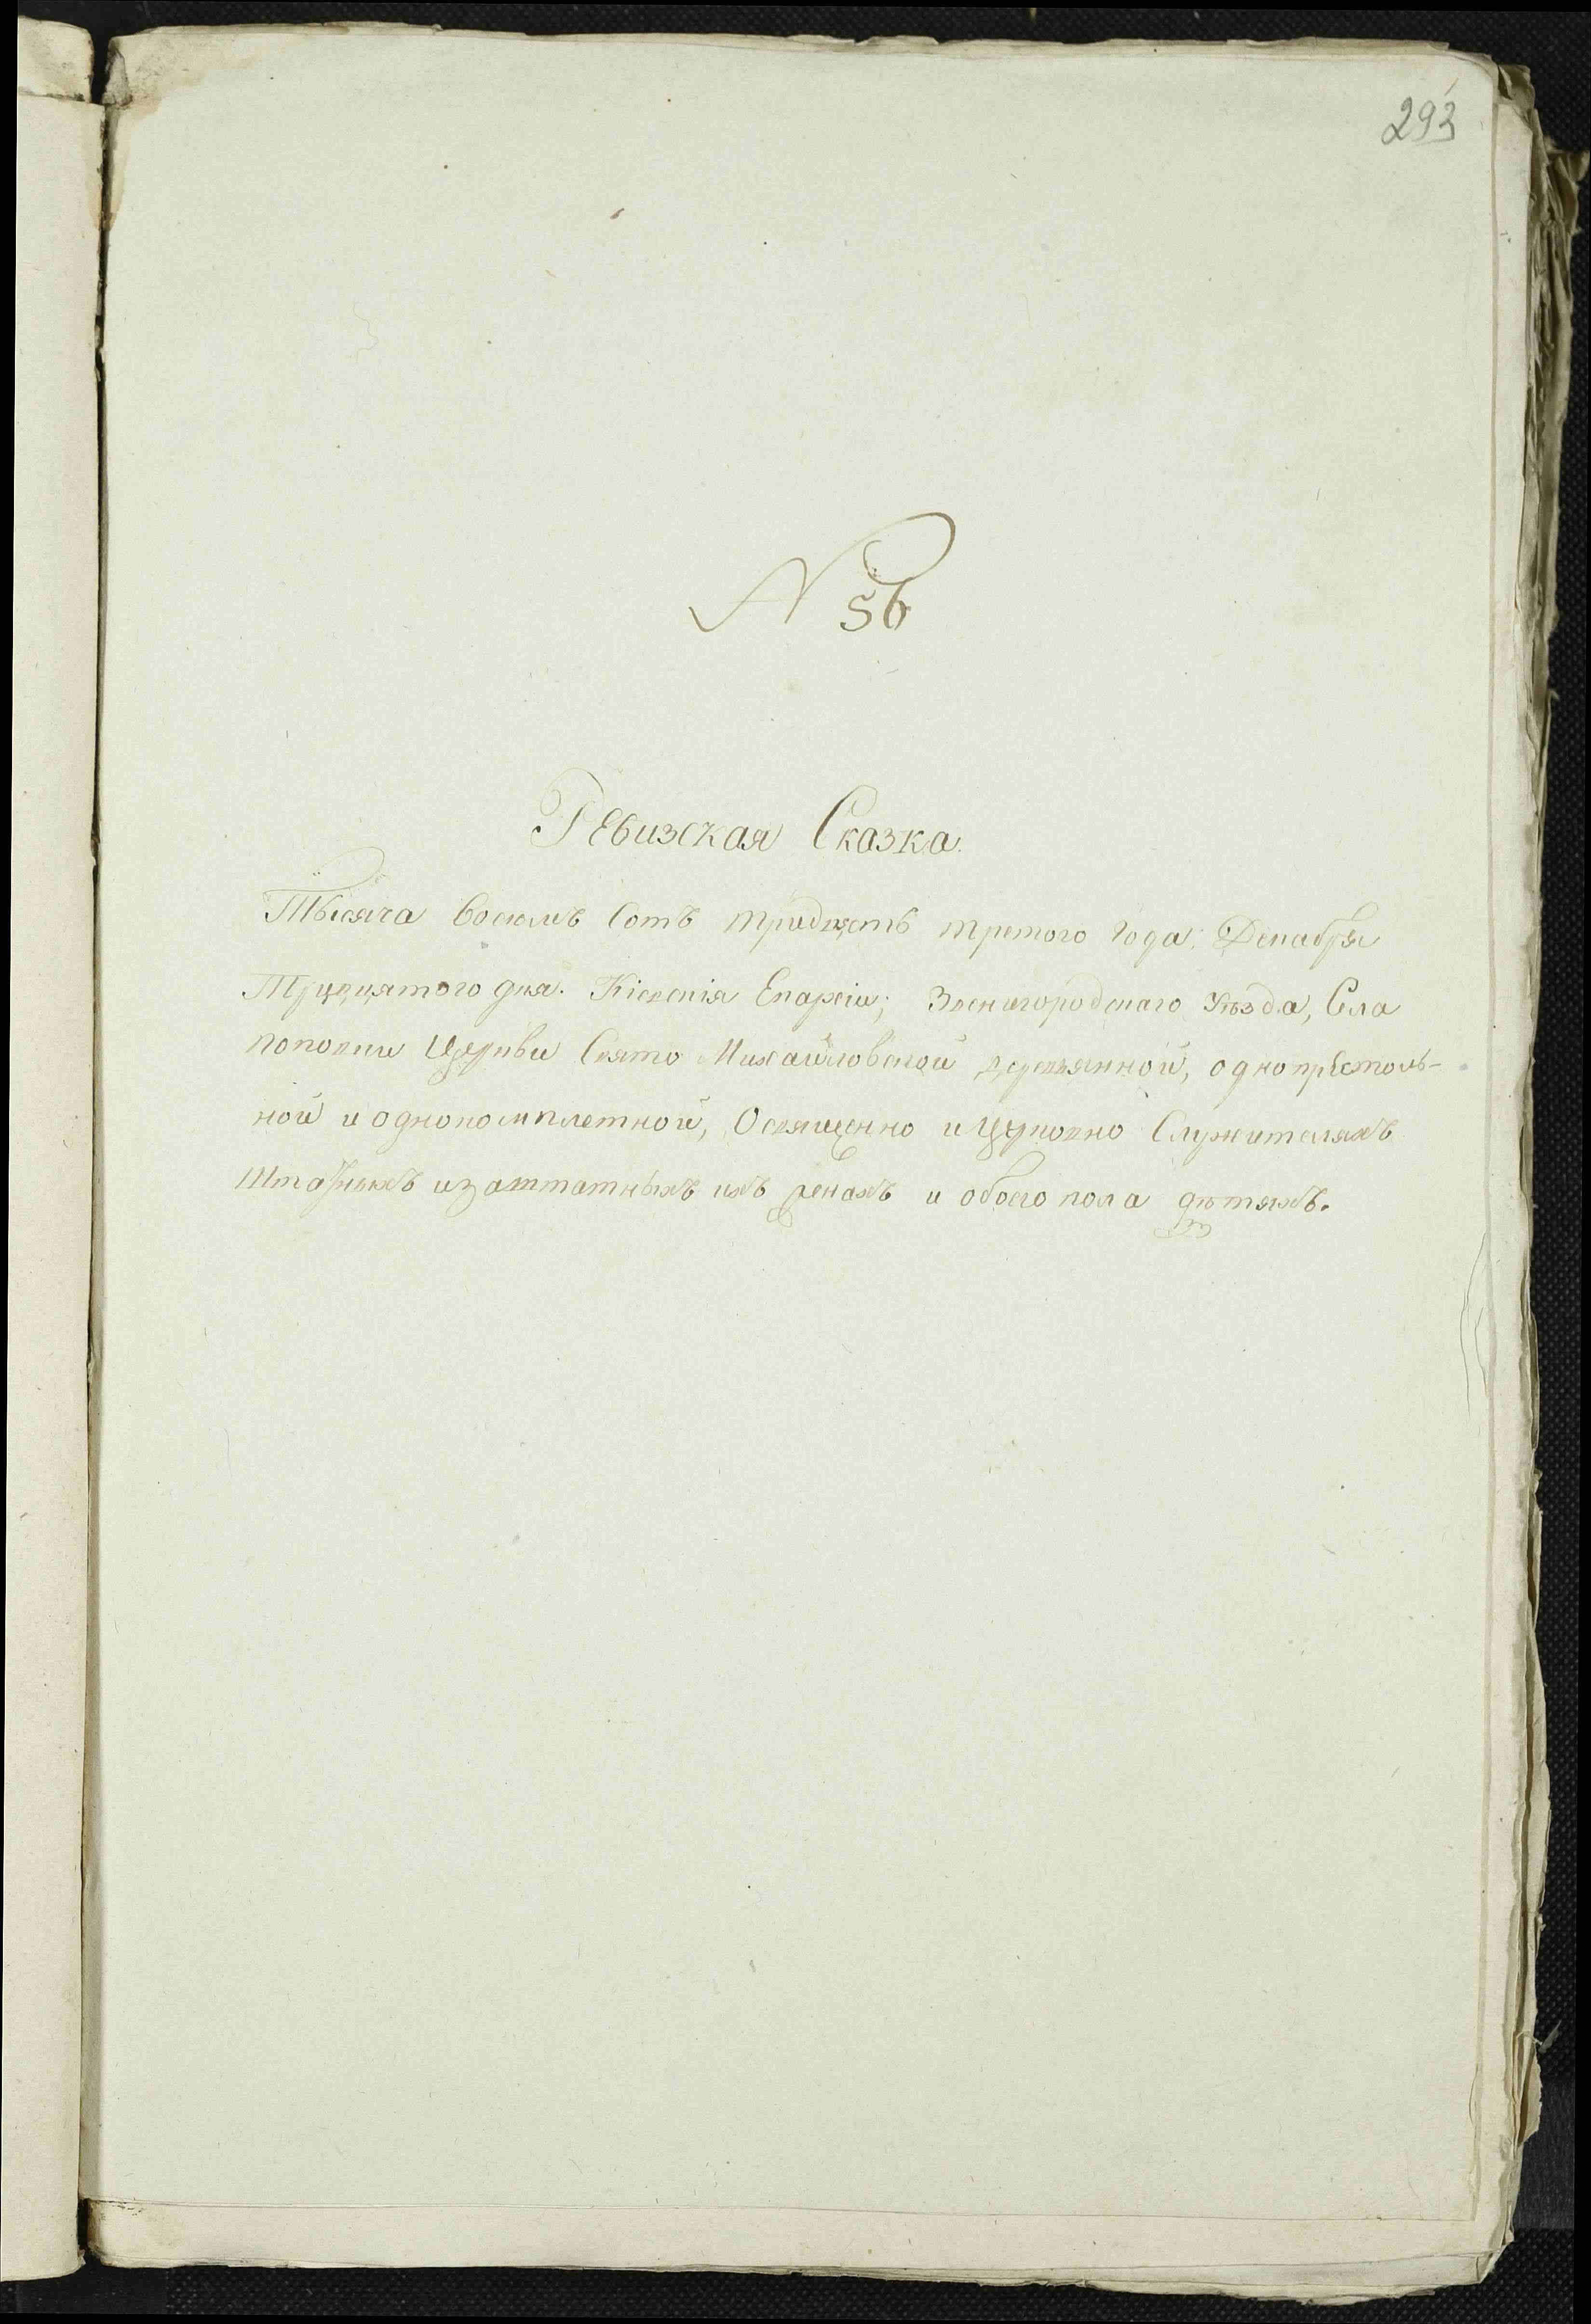 293
N 56
Ревизская Сказка.
Тысяча восемъ Сотъ тридцять третого Года, Декабря
Тридцятого дня. Кіевскія Епархіи; Звенигородскаго уѣзда, Села
поповки Церкви Свято Михайловской деревянной, однопрестоль-
ной и однокомплетной, Освященно и Церковно Служителяхъ
Штатныхъ изаштатныхъ ихъ женахъ и обоего пола дѣтяхъ.